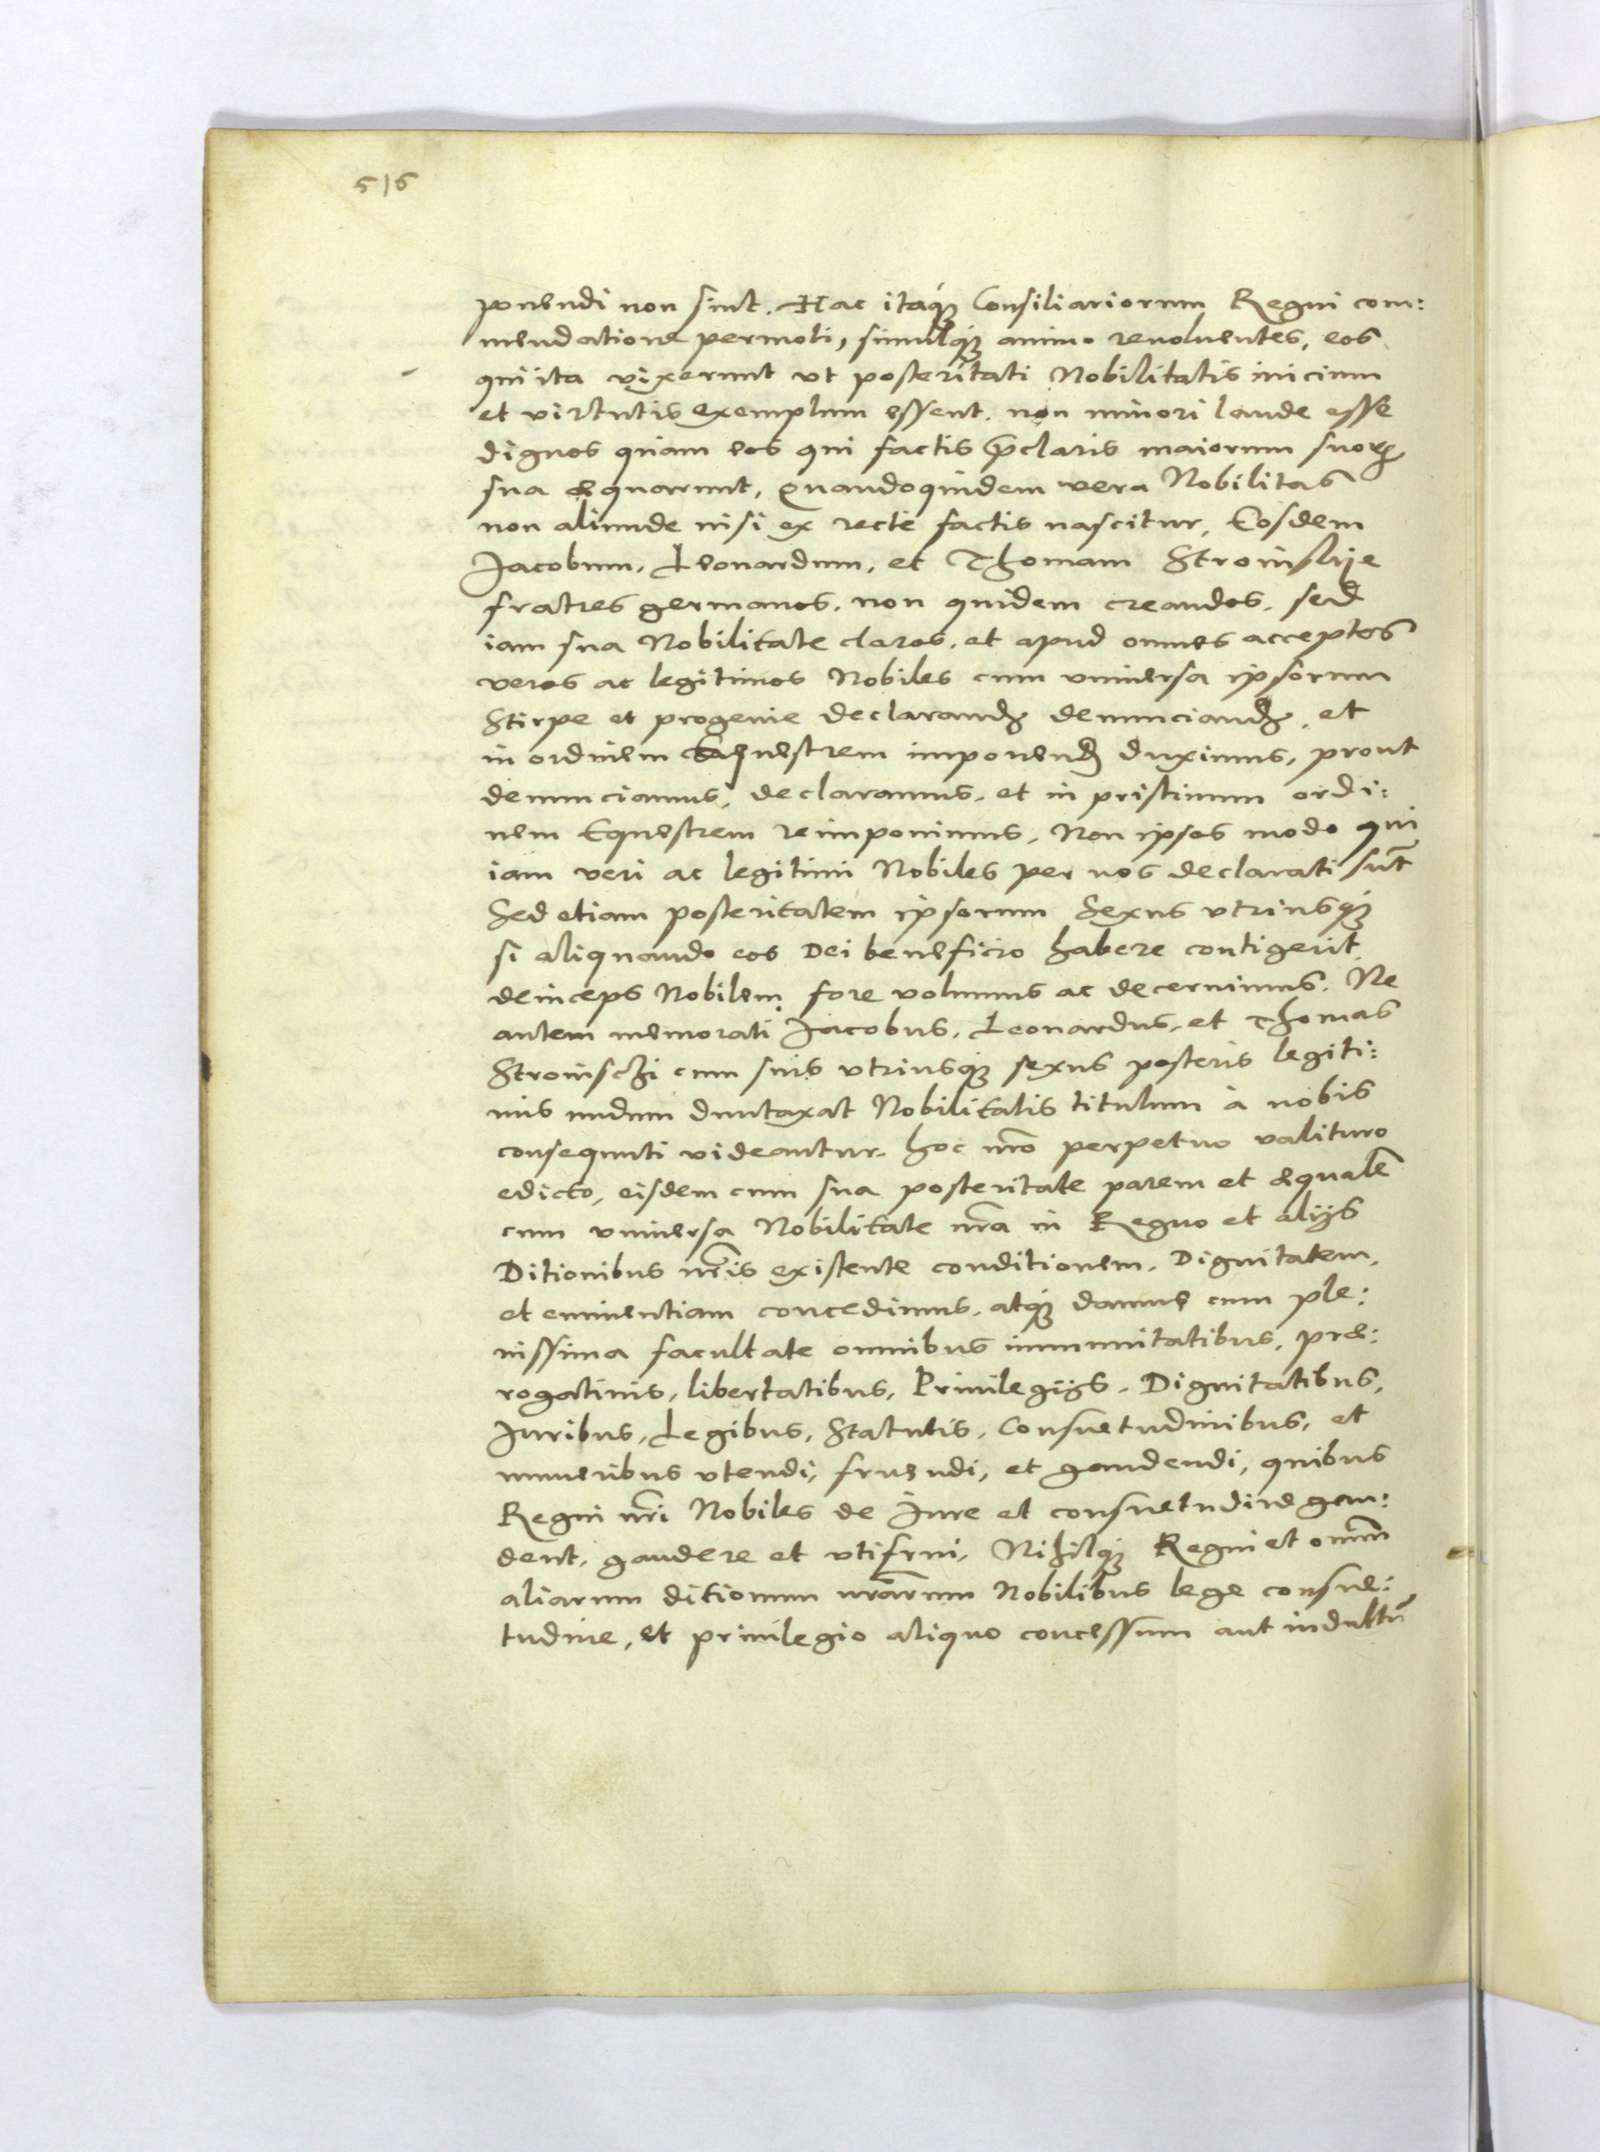 516
ponendi non sint. Hac itaq; Consiliariorum Regni com:
mendatione permoti, simulq; animo reuoluentes, eos
qui ita vixerunt vt posteritati Nobilitatis inicium
et virtutis exemplum essent. non minori laude esse
dignos quam eos qui factis p̄claris maiorum suoꝝ
sua æquarunt, Quandoquidem vera Nobilitas
non aliunde nisi ex rectè factis nascitur, Eosdem
Jacobum, Leonardum, et Thomam
fratres germanos, non quidem creandos, sed
iam sua Nobilitate claros, et apud omnes acceptos
veros ac legitimos Nobiles cum vniuersa ipsorum
Stirpe et progenie declarand. denunciand. et
in ordinem Equestrem imponend. duximus, prout
denunciamus, declaramus, et in pristinum ordi:
nem Equestrem reimponimus, Non ipsos modo qui
iam veri ac legitimi Nobiles per nos declarati sūt
Sed etiam posteritatem ipsorum Sexus vtriusq;
si aliquando eos Dei beneficio habere contigerit
deinceps Nobilem fore volumus ac decernimus. Ne
autem memorati Jacobus, Leonardus, et Thomas
Stroinsczi cum suis vtriusq; sexus posteris legiti:
mis nudum duntaxat Nobilitatis titulum à nobis
consequuti videantur, hoc nr̄o perpetuo valituro
edicto, eisdem cum sua posteritate parem et æqualē
cum vniuersa Nobilitate nr̄a in Regno et alijs
Ditionibus nr̄is existente conditionem, Dignitatem,
et eminentiam concedimus, atq; damus cum ple:
nissima facultate omnibus immunitatibus, præ:
rogatiuis, libertatibus, Priuilegijs, Dignitatibus,
Juribus, Legibus, Statutis, Consuetudinibus, et
muneribus vtendi, fruendi, et gaudendi, quibus
Regni nr̄i Nobiles de Jure et consuetudine gau:
dent, gaudere et vtifrui, Nihilq; Regni et omniū
aliarum ditionum nr̄arum Nobilibus lege consue:
tudine, et priuilegio aliquo concessum aut indultū